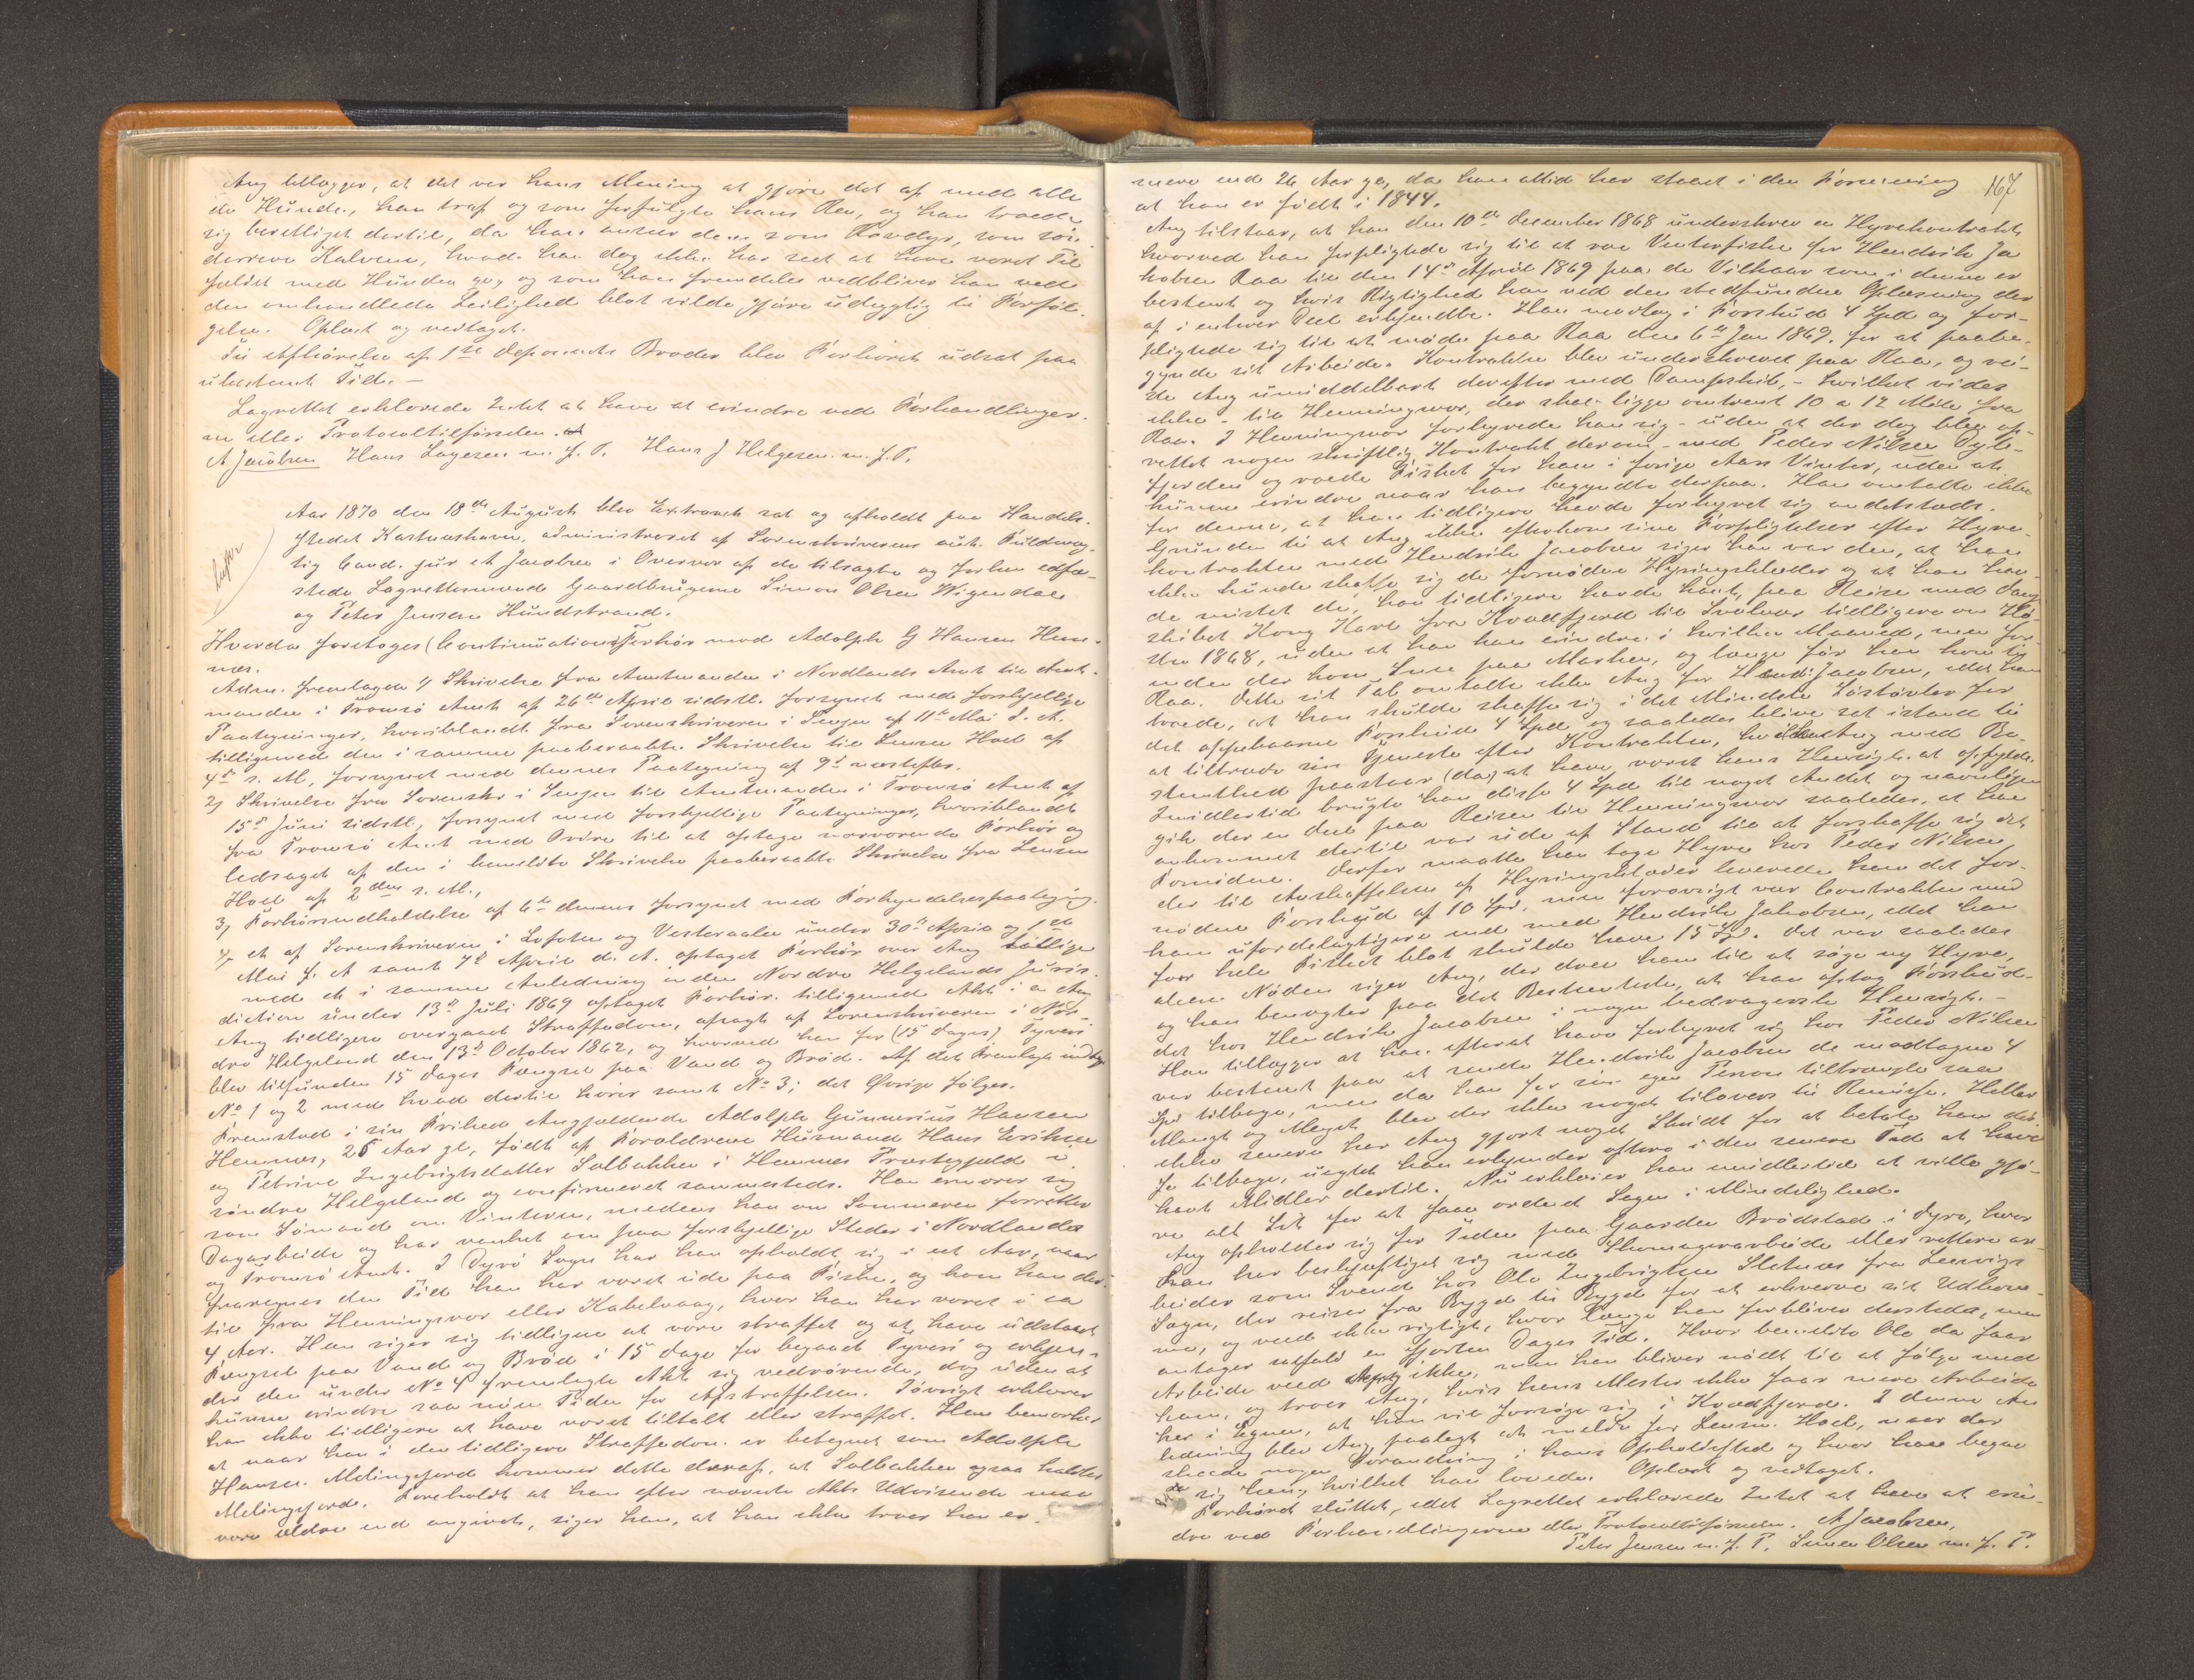 Ang tillægger, at det var hans Mening at gjøre det af med alle
de Hunde, han traf og som forfulgte hans Ren, og han troede
sig berettiget dertil, da han anser dem som Rovdyr, som søn-
derreve Kalvene, hvad han dog ikke har seet at have været Til
fældet med Hunden og som han fremdeles vedbliver han ved
den omhandlede Leilighed blot vilde gjøre udygtig til Forføl-
gelse. Oplæst og vedtaget.
Til Afhørelse af 1ste Deponents Broder blev Forhøret udsat paa
ubestemt Tid. —
Lagrettet erklærede Intet at have at erindre ved Forhandlinger-
ne eller Protocoltilførselen.
A Jacobsen Hans Lagesen m. f. P. Hans J Helgesen m. f. P.
Aar 1870 den 18de August blev Extraret sat og afholdt paa Handels-
stedet Kastneshavn, administreret af Sorenskriverens aut. Fuldmæg-
tig Cand. jur A Jacobsen i Overvær af de tilsagte og forhen edfæ-
stede Lagrettesmænd Gaardbrugerne Simon Olsen Wigendal
og Peter Jensen Hundstrand.
Hvorda foretoges (Continuations)Forhør mod Adolph G Hansen Hem-
nes.
Adm. fremlagde 1/ Skrivelse fra Amtmanden i Nordlands Amt til Amt-
manden i Tromsø Amt af 26de April sidstl. forsynet med forskjellige
Paategninger, hvoriblandt fra Sorenskriveren i Senjen af 11te Mai d. A.
tilligemed den i samme paaberaabte Skrivelse til Lensm Hoel af
4de s. M, forsynet med dennes Paategning af 9de næstefter.
2/ Skrivelse fra Sorenskr i Senjen til Amtmanden i Tromsø Amt af
15de Juni sidstl, forsynet med forskjellige Paategninger, hvoriblandt
fra Tromsø Amt med Ordre til at optage nærværende Forhør og
ledsaget af den i bemeldte Skrivelse paaberaabte Skrivelse fra Lensm
Hoel af 2den s. M.,
3/ Forhørsindkaldelse af 6te dennes forsynet med Forkyndelsespaategng.
4/ et af Sorenskriveren i Lofoten og Vesteraalen under 30te April og 1ste
Mai f. A samt 7de April d. A. optaget Forhør over Ang tillige
med et i samme Anledning inden Nordre Helgelands Juris-
diction under 13de Juli 1869 optaget Forhør tilligemed Akt i en
Ang tidligere overgaaet Straffedom, afsagt af Sorenskriveren i Nor-
dre Helgeland den 13de October 1862, og hvorved han for (15 Dages) Tyveri
blev tilfunden 15 Dages Fængsel paa Vand og Brød. Af det Fremlagte indtages
No 1 og 2 med hvad dertil hører samt No 3; det Øvrige følger.
Fremstod i sin Frihed Angjældende Adolph Gunnerius Hansen
Hemnes, 25 Aar gl, født af Forældrene Husmand Hans Eriksen
og Petrine Ingebrigtsdatter Solbakken i Hemnes Præstegjeld i
søndre Helgeland og confirmeret sammesteds. Han ernærer sig
som Sømand om Vinteren, medens han om Sommeren forretter
Dagarbeide og har vanket om paa forskjellige Steder i Nordlands
og Tromsø Amt. I Dyrø Sogn har han opholdt sig i eet Aar, naar
fraregnes den Tid han har været ude paa Fiske, og kom han der
til fra Henningsvær eller Kabelvaag, hvor han har været i ca
4 Aar. Han siger sig tidligere at være straffet og at have udstaaet
Fængsel paa Vand og Brød i 15 Dage for begaaet Tyveri og erkjen-
der den under No 4 fremlagte Akt sig vedrørende, dog uden at
kunne erindre saa nøie Tiden for Afstraffelsen. Iøvrigt erklærer
han ikke tidligere at have været tiltalt eller straffet. Han bemærker
at naar han i den tidligere Straffedom er betegnet som Adolph
Hansen Melingsfjord kommer dette deraf, at Solbakken ogsaa kaldes
Melingsfjord. Foreholdt at han efter nævnte Akts Udvisende maa
være ældre end angivet, siger han, at han ikke troer han er
167
mere end 26 Aar gl, da han altid har staaet i den Formening
at han er født i 1844.
Ang tilstaar, at han den 10de December 1868 underskrev en Hyrekontrakt
hvorved han forpligtede sig til at roe Vinterfiske for Hendrik Ja
kobsen Raa til den 14de April 1869 paa de Vilkaar som i denne er
bestemt og hvis Rigtighed han ved den stedfundne Oplæsning der
af i enhver Deel erkjendte. Han modtog i Forskud 4 Spd og for-
pligtede sig til at møde paa Raa den 6te Jan 1869. for at paabe-
gynde sit Arbeide. Kontrakten blev underskrevet paa Raa, og rei-
ste Ang umiddelbart derefter med Dampskib, – hvilket vides
ikke – til Henningsvær, der skal ligge omtrent 10 a 12 Mile fra
Raa. I Henningsvær forhyrede han sig – uden at der dog blev op-
rettet nogen skriftlig Kontrakt derom – med Peder Nilsen
fjorden og roede Fisket for ham i forige Aars Vinter, uden at
kunne erindre naar han begyndte derpaa. Han omtalte ikke
for denne, at han tidligere havde forhyret sig andetsteds.
Grunden til at Ang ikke efterkom sine Forpligtelser efter Hyre-
kontrakten med Hendrik Jacobsen siger han var den, at han
ikke kunde skaffe sig de fornødne Hyringsklæder og at han hav-
de mistet de, han tidligere havde havt, paa Reise med Damp
skibet Kong Karl fra Kvædfjord til Svolvær tidligere om Hø-
sten 1868, uden at han kan erindre i hvilken Maaned, men for-
inden der kom Snee paa Marken, og længe før han kom til
Raa. Dette sit Tab omtalte ikke Ang for Hend: Jacobsen, idet han
troede, at han skulde skaffe sig i det Mindste Søstøvler for
det opgebaarne Forskud 4 Spd og saaledes blive sat istand til
at tiltræde sin Tjeneste efter Kontrakten, hvilket Ang med Be-
stemthed paastaar (da) at have været hans Hensigt at opfylde.
Imidlertid brugte han disse 4 Spd til noget Andet og navnligen
gik der en Deel paa Reisen til Henningsvær saaledes, at han
ankommet dertil var ude af Stand til at forskaffe sig det
Fornødne. Derfor maatte han tage Hyre hos Peder Nilsen
der til Anskaffelsen af Hyringsklæder leverede ham det for-
nødne Forskud af 10 Spd, men forøvrigt var Contrakten med
ham ufordelagtigere end med Hendrik Jakobsen, idet han
for hele Fisket blot skulde have 15 Spd. Det var saaledes
alene Nøden siger Ang, der drev ham til at søge ny Hyre,
og han benegter paa det Bestemteste, at han optog Forskud-
det hos Hendrik Jacobsen i nogen bedragersk Hensigt. –
Han tillægger at han efterat have forhyret sig hos Peder Nilsen
var bestemt paa at sende Hendrik Jacobsen de modtagne 4
Spd tilbage, men da han for sin egen Person tiltrængte saa
Mangt og Meget blev der ikke noget tilovers til Remisse. Heller
ikke senere har Ang gjort noget Skridt for at betale ham dis-
se tilbage, uagtet han erkjender oftere i den senere Tid at have
havt Midler dertil. Nu erklærer han imidlertid at ville gjø-
re alt Sit for at faae ordnet Sagen i Mindelighed.
Ang opholder sig for Tiden paa Gaarden Brødstad i Dyrø, hvor
han har beskjæftiget sig med Skomagerarbeide eller rettere ar-
beider som Svend hos Ole Ingebrigtsen Sletnes fra Lenvigs
Sogn, der reiser fra Bygd til Bygd for at erhverve sit Udkom-
me, og veed ikke rigtigt, hvor længe han forbliver dersteds, men
antager ialfald en fjorten Dages Tid. Hvor bemeldte Ole da faar
Arbeide veed Ang ikke, men han bliver nødt til at følge med
ham, og troer Ang, hvis hans Mester ikke faar mere Arbeide
her i Egnen, at han vil forsøge sig i Kvædfjord. I denne An
ledning blev Ang paalagt at melde for Lensm. Hoel, naar der
skeede nogen Forandring i hans Opholdssted og hvor han begav
sig hen, hvilket han lovede. Oplæst og vedtaget.
Forhøret sluttet, idet Lagrettet erklærede Intet at have at erin-
dre ved Forhandlingerne eller Protocoltilførselen. A Jacobsen,
Peter Jensen m. f. P. Simon Olsen m. f. P.